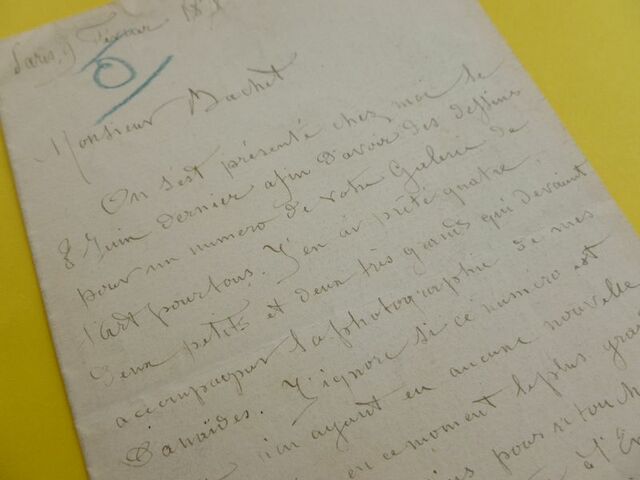 Paris, 9 Fevrier 18
Monsieur Bachet
On s'est présenté chez moi le
8 Juin dernier afin d'avoir des dessins
pour un numero de votre Galerie de
l'art pour tous. J'en ai prêté quatre
deux petits et deux très grands qui devaient
accompagner la photographie de mes
Danaïdes. J'ignore si ce numero est
n'en ayant eu aucune nouvelle
en ce moment le plus gra
pour retouch
à l'E